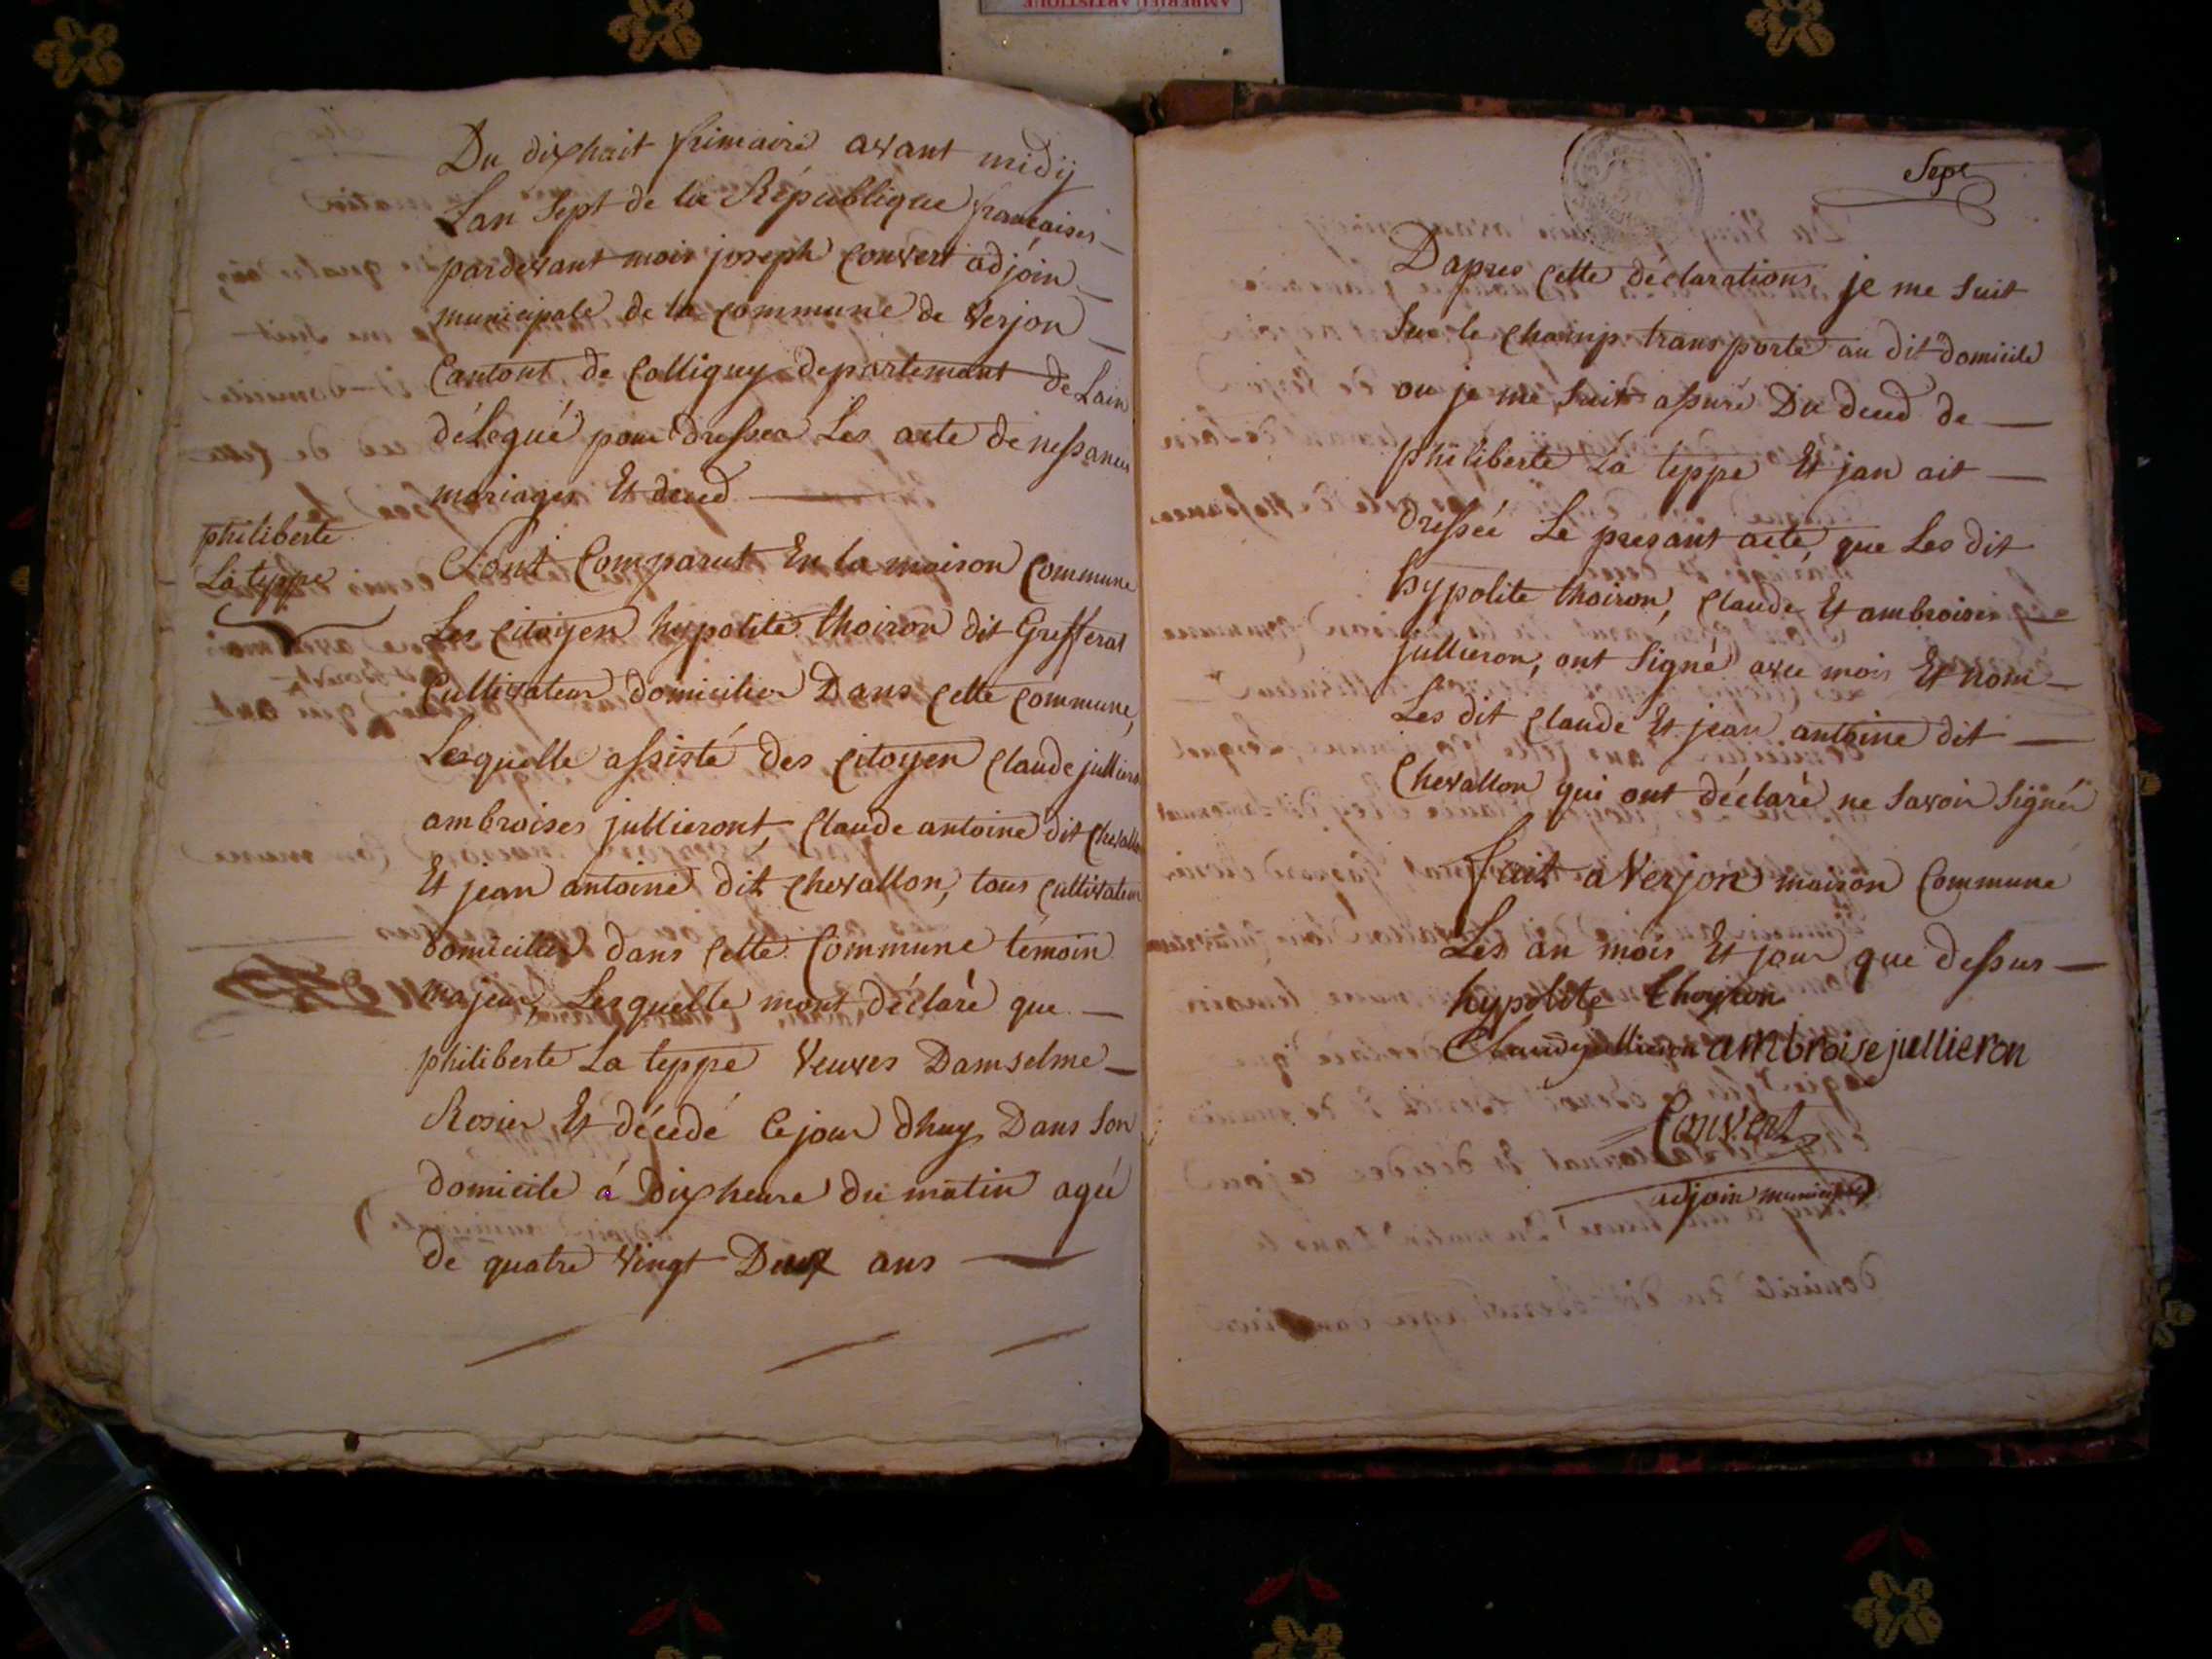 AMBERIEU ARTISTIQUE
Du dixhuit frimaire avant midij
Lan Sept de la République francaises
pardevant mois joseph Convert adjoin
municipale de la Commune de Verjon
Cantont de Colligny departemant de Lain
délegué pour dresser Les acte de nessances
mariages Et deced
philiberte
La teppe
Sont Comparut En la maison Commune
Les Citoyen hypolite thoiron dit Grefferat
Cultivateur domicilier Dans Cette Commune,
Lesquelle assisté des Citoyen Claude jullieron
ambroises jullieront, Claude antoine dit Chevallon
Et jean antoine dit Chevallon, tous Cultivateur
domicillier dans Cette Commune témoin
majeur, Lesquelle mont déclaré que
philiberte La teppe Veuves Damselme
Rosier Et décedé Ce jour dhuy Dans Son
domicile á dix heure du matin ageé
de quatre Vingt Deux ans
Sept
Dapres Cette déclarations je me Suit
Sur le Champ transporté au dit domicile
ou je me Suit assuré Du deced de
philiberte La teppe Et jan ait
dresseé Le presant acte, que Les dit
hypolite thoiron, Claude Et ambroises
jullieron, ont Signé avec mois Et nom
Les dit Claude Et jean antoine dit
Chevallon qui ont déclaré ne Savoir Signér
fait a Verjon maison Commune
Les an mois Et jour que dessus
hypolite thoyron
Claude jullieron ambroise jullieron
Convert
adjoin municipale